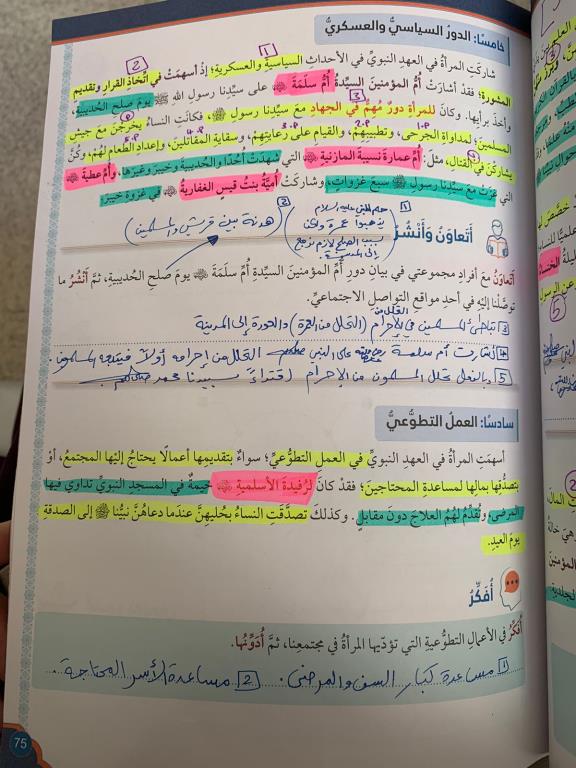 خامسًا: الدورُ السياسيُّ والعسكريُّ
شاركَتِ المرأةُ في العهدِ النبويِّ في الأحداثِ السياسيةِ والعسكريةِ؛ إذْ أسهمَتْ في اتّخاذِ القرارِ وتقديمِ
المشورةِ؛ فقدْ أشارَتْ أمُّ المؤمنينَ السيّدةُ أُمُّ سلَمَةَ على سيّدِنا رسولِ اللهِ ﷺ يومَ صلحِ الحُديبيةِ،
وأخذَ برأيِها. وكانَ للمرأةِ دورٌ مُهِمٌّ في الجهادِ معَ سيّدِنا رسولِ اللهِ ﷺ، فكانَتِ النساءُ يخرجْنَ معَ جيشِ
المسلمينَ؛ لمداواةِ الجرحى، وتطبيبِهِمْ، والقيامِ على رعايتِهِمْ، وسقايةِ المقاتلينَ، وإعدادِ الطعامِ لهُمْ، وكُنَّ
يشاركْنَ في القتالِ، مثلَ: أمِّ عمارةَ نسيبةَ المازنيةِ التي شهدَتْ أُحُدًا والحُديبيةَ وخيبرَ وغيرَها، وأمِّ عطيةَ
التي غزَتْ معَ سيّدِنا رسولِ اللهِ ﷺ سبعَ غزواتٍ، وشاركَتْ أُميّةُ بنتُ قيسٍ الغفاريةُ في غزوةِ خيبرَ
1 2 3 4
1.P 2.P 3.P 4.P 5.P
1 حلم النبي عليه السلام
يذهبوا عمرة ولكن
بسبب الصلح لازم يرجع
إلى المدينة
2 (هدنة بين قريش والمسلمين)
أَتعاوَنُ وَأَنْشُرُ
أَتعاوَنُ معَ أفرادِ مجموعتي في بيانِ دورِ أُمِّ المؤمنينَ السيّدةِ أُمِّ سلَمَةَ يومَ صلحِ الحُديبيةِ، ثمَّ أَنْشُرُ ما
توصَّلْنا إليْهِ في أحدِ مواقعِ التواصلِ الاجتماعيِّ.
3 تباطئ المسلمين في التحلل من الإحرام (التحلل من العمرة) والعودة إلى المدينة
4 أشارت أم سلمة رضي الله عنها على النبي ﷺ التحلل من إحرامه أولاً فيتبعه المسلمون.
5 وبالفعل تحلل المسلمون من الإحرام اقتداءً بسيدنا محمد ﷺ
سادسًا: العملُ التطوّعيُّ
أسهمَتِ المرأةُ في العهدِ النبويِّ في العملِ التطوّعيِّ؛ سواءٌ بتقديمِها أعمالًا يحتاجُ إليْها المجتمعُ، أوْ
بتصدُّقِها بمالِها لمساعدةِ المحتاجينَ؛ فقدْ كانَ لِرُفيدةَ الأسلميةِ خيمةٌ في المسجدِ النبويِّ تداوي فيها
المرضى، وتُقدِّمُ لهُمُ العلاجَ دونَ مقابلٍ. وكذلكَ تصدَّقَتِ النساءُ بحُليهِنَّ عندَما دعاهُنَّ نبيُّنا ﷺ إلى الصدقةِ
يومَ العيدِ.
أُفَكِّرُ
أُفَكِّرُ في الأعمالِ التطوُّعيةِ التي تؤدّيها المرأةُ في مجتمعِنا، ثمَّ أُدَوِّنُها.
1 مساعدة كبار السن والمرضى. 2 مساعدة الأسر المحتاجة.
75